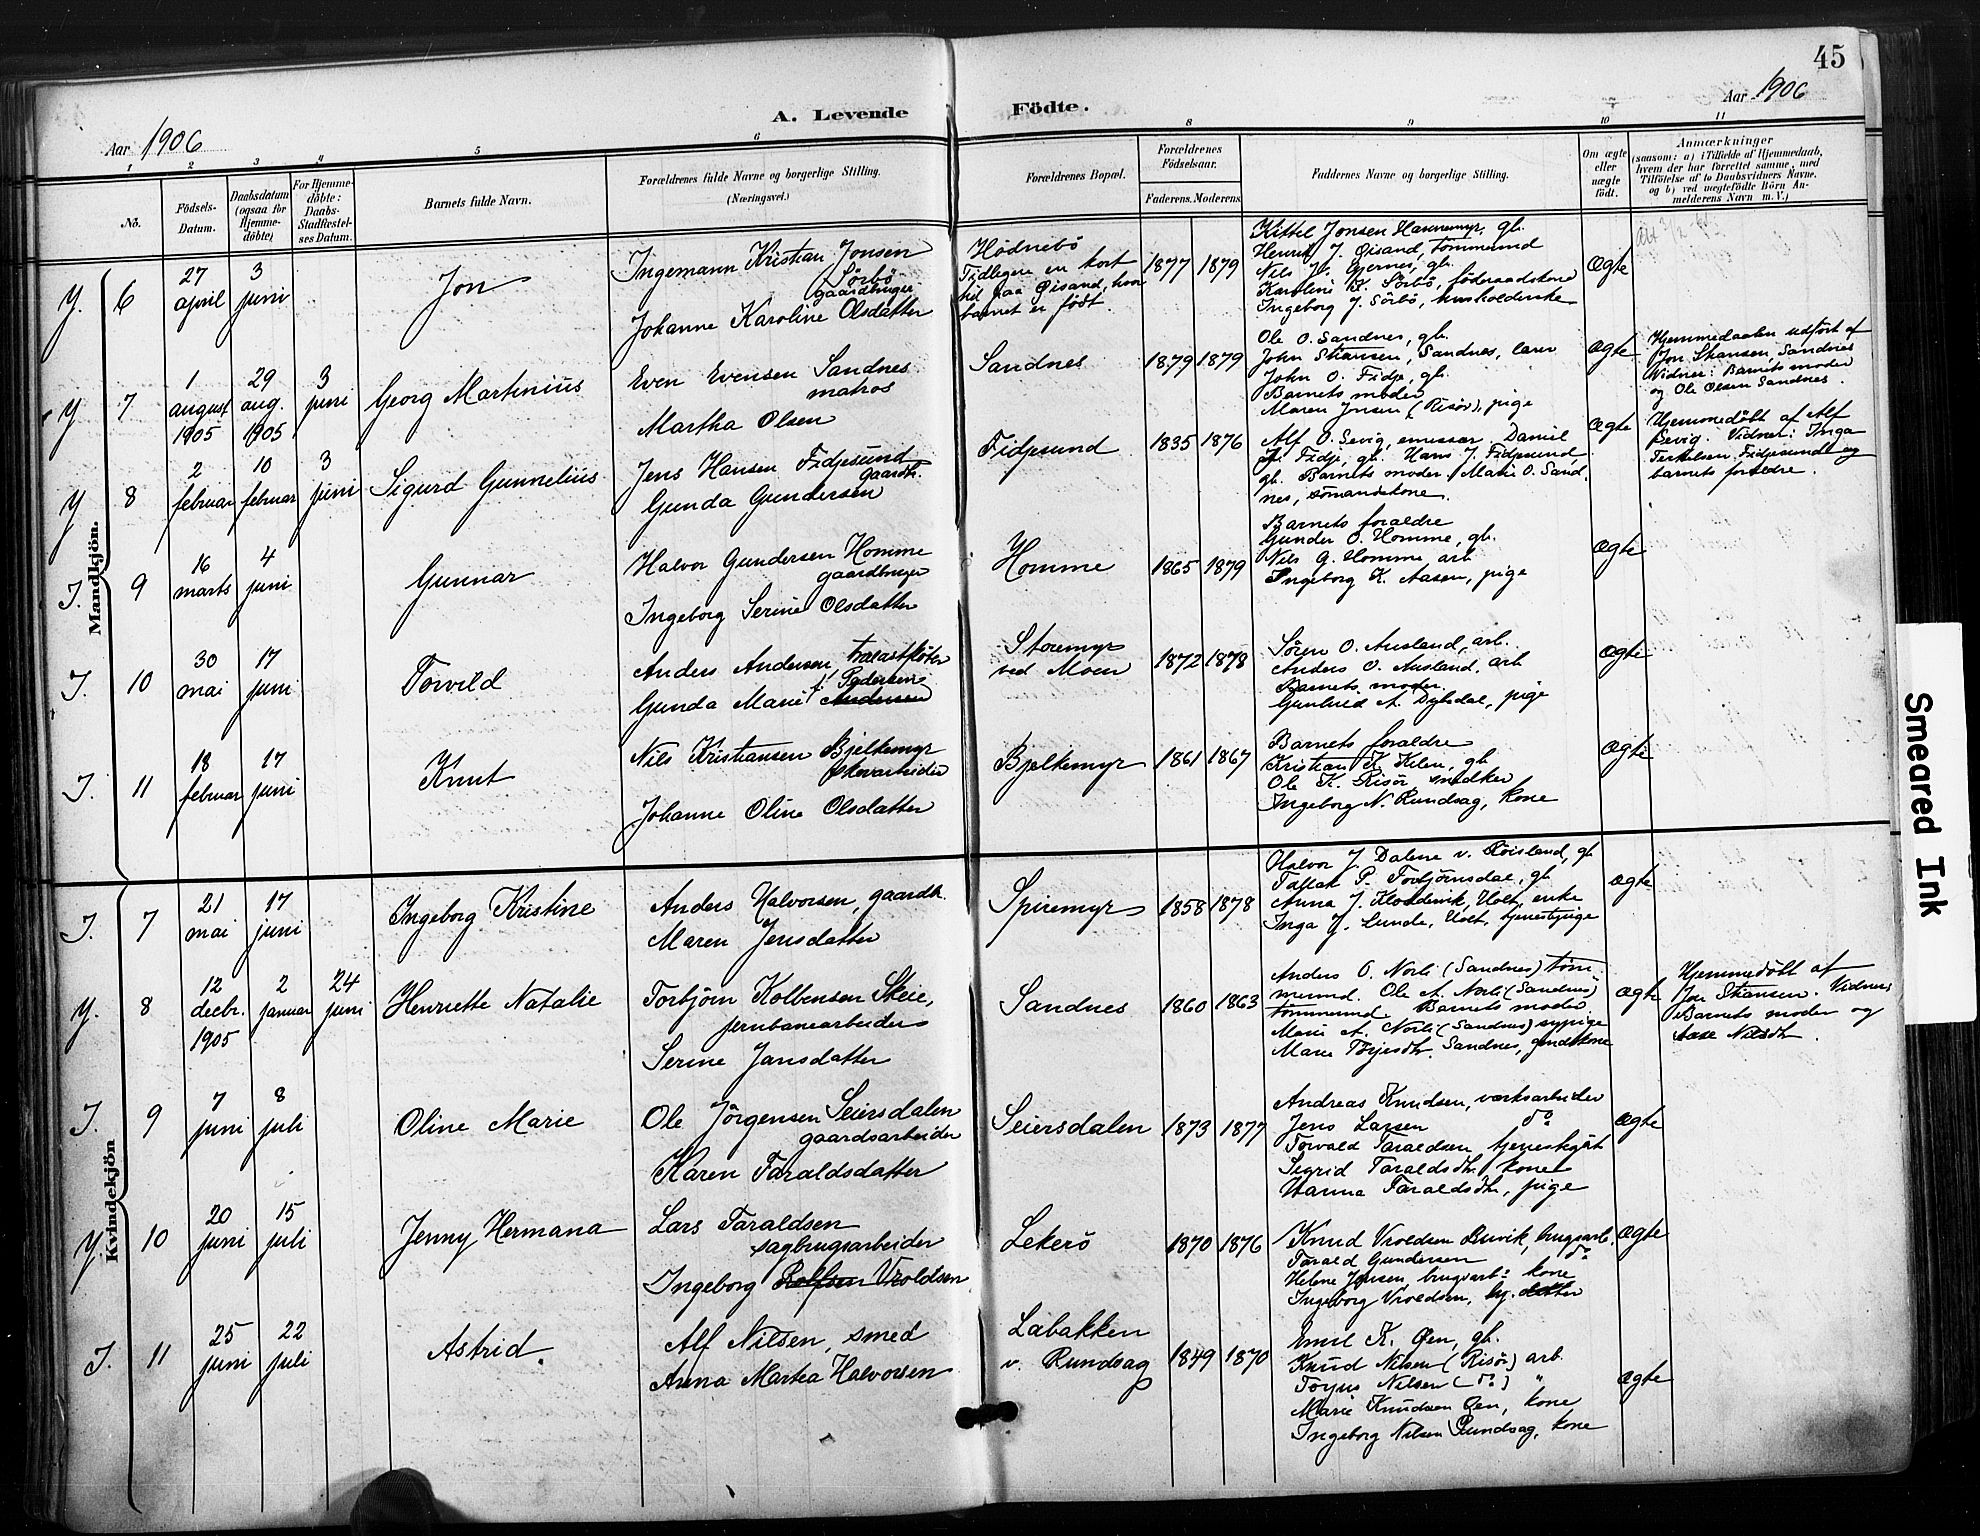 45
Aar 1906
A. Levende Födte.
Aar 1906
1 2 3 4 5 6 8 9 10 11
No.
Födsels-Datum.
Daabsdatum (ogsaa for Hjemme-döbte)
For Hjemme-döbte: Daabs-Stadfæstel-ses Datum.
Barnets fulde Navn.
Forældrenes fulde Navne og borgerlige Stilling. (Næringsvei.)
Forældrenes Bopæl.
Forældrenes Födselsaar.
Faderens. Moderens.
Faddernes Navne og borgerlige Stilling.
Om ægte eller uægte födt.
Anmærkninger
(saasom: a) i Tilfælde af Hjemmedaab, hvem der har forrettet samme, med Tilföielse af to Daabsvidners Navne, og b) ved uægtefödte Börn An-melderens Navn m. V.)
Mandkjön.
Y. 6
27 april
3 juni
Jon
Ingemann Kristian Jonsen
Sörbö
gaardbruger
Johanne Karoline Olsdatter
Hödnebö
Tidligere en kort
tid paa Øisand, hvor
barnet er födt.
1877 1879
Kittel Jonsen Hannemyr, gb.
Henrik J. Øisand, tömmermd
Nils J. Gjernes, gb.
Karoline K. Sörbö, föderaadskone
Ingeborg J. Sörbö, husholderske
Ægte
Y 7
1 august 1905
29 aug. 1905
3 juni
Georg Martinius
Even Evensen Sandnes
matros
Martha Olsen
Sandnes
1879 1879
Ole O. Sandnes, gb.
John Stiansen, Sandnes, lærer
John O. Fidje, gb.
Barnets moder
Maren Jensen (Risör), pige
Ægte
Hjemmedaaben udfört af
Jon Stiansen, Sandnes
Vidner: Barnets moder
og Ole Olsen Sandnes.
Y 8
2 februar
10 februar
3 juni
Sigurd Gunnelius
Jens Hansen Fidjesund
gaardb.
Gunda Gundersen
Fidjesund
1835 1876
Alf O. Sevig, emissær, Daniel
Fidje, gb. Hans J. Fidjesund
gb. Barnets moder. Marie O. Sand
nes, sömandskone.
Ægte
Hjemmedöbt af Alf
Sevig. Vidner: Inga
Terkelsen Fidjesund og
barnets foræeldre.
I. 9
16 marts
4 juni
Gunnar
Halvor Gundersen Homme
gaardbruger
Ingeborg Serine Olsdatter
Homme
1865 1879
Barnets forældre
Gunder O. Homme, gb.
Nils G. Homme arb
Ingeborg K. Aasen, pige
Ægte
I. 10
30 mai
17 juni
Torvild
Anders Andersen,
Pedersen
Gunda Marie Andersen
Storemyr
ved Moen
1872 1878
Sören O. Ausland, arb.
Anders O. Ausland, arb
Barnets moder.
Gunhild A. Dybdal, pige
Ægte
I. 11
18 februar
17 juni
Knut
Nils Kristiansen Bjelkemyr
skovarbeider
Johanne Oline Olsdatter
Bjelkemyr
1861 1867
Barnets forældre
Kristian K. Kilen, gb
Ole K. Risör snedker
Ingeborg N. Rundsag, kone
Ægte
Kvindekjön
I. 7
21 mai
17 juni
Ingeborg Kristine
Anders Halvorsen, gaardb.
Maren Jensdatter
Spiremyr
1858 1878
Halvor J. Dalene v. Röisland, gb
Tallak P. Torbjörnsdal, gb
Anna J. Holt, enke
Inga J. Lunde, Holt, tjenestpige
Ægte
Y. 8
12 decbr. 1905
2 januar
24 juni
Henriette Natalie
Torbjörn Kolbensen Skeie,
jernbanearbeider
Serine Jansdatter
Sandnes
1860 1863
Anders O. Norli (Sandnes) töm
mermd. Ole A. Norli (Sandnes)
tömmermd. Barnets moder
Marie A. Norli (Sandnes) sypige
Maren Terjesdtr. Sandnes, gmdskone
Ægte
Hjemmedöbt af
Jon Stiansen. Vidner
Barnets moder og
Aase Nilsdtr.
I. 9
7 juni
8 juli
Oline Marie
Ole Jörgensen Seiersdalen
gaardsarbeider
Karen Taraldsdatter
Seiersdalen
1873 1877
Andreas Knudsen, værksarbeider
Jens Larsen do
Torvald Taraldsen tjenestgut
Sigrid Taraldsdtr. kone
Hanna Taraldsdtr, pige
Ægte
Y. 10
20 juni
15 juli
Jenny Hermana
Lars Taraldsen
sagbrugsarbeider
Ingeborg Rolfsen Vroldsen
Lekerö
1870 1876
Knud Vroldsen Buvik, brugsarb.
Tarald Gundersen do
Helene Jensen, brugsarb: kone
Ingeborg Vroldsen,
Ægte
I. 11
25 juni
22 juli
Astrid.
Alf Nilsen, smed
Anna Martea Halvorsen
Labakken
v. Rundsag
1849 1870
Emil K. Øen, gb.
Knud Nilsen (Risör) arb.
Torjus Nilsen (do) "
Marie Knudsen Øen, kone
Ingeborg Nilsen Rundsag, kone
Ægte
Smeared Ink